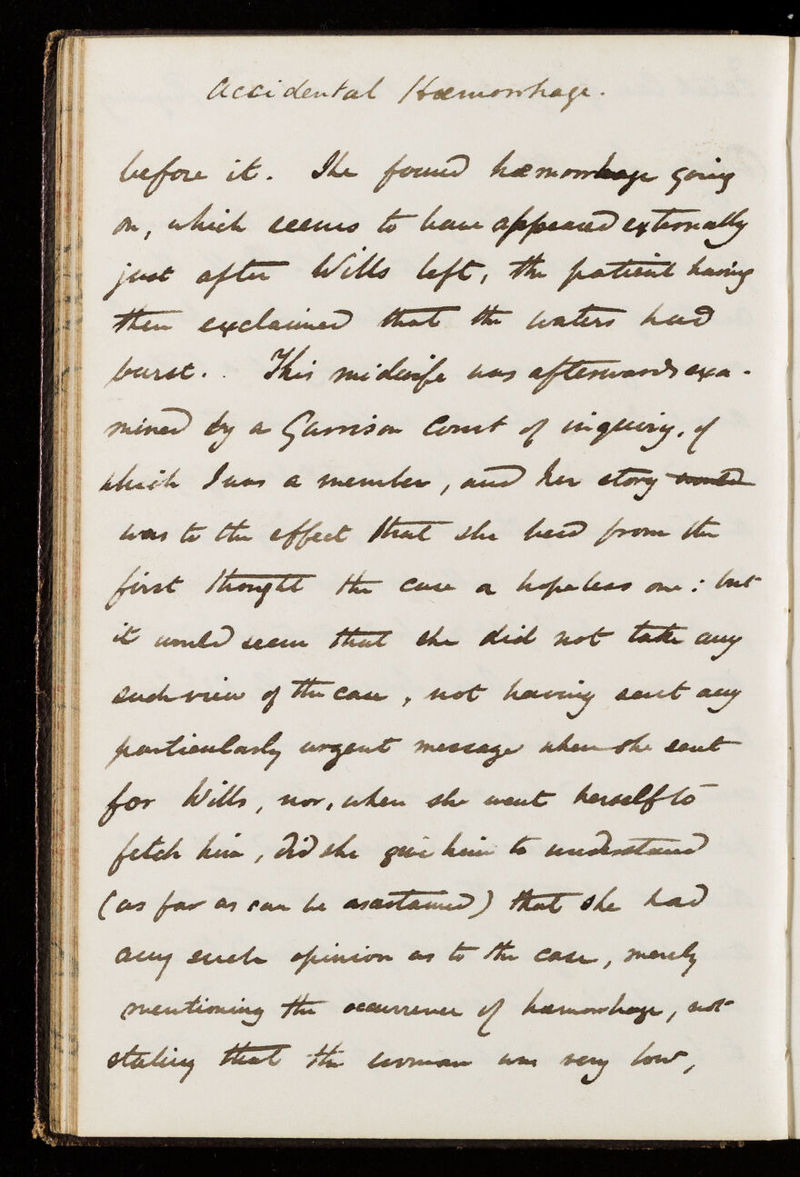 Accidental Hæmorrhage.
before it. She found hæmorrhage going
on, which seems to have appeared externally
just after Wills left, the patient having
then exclaimed that the waters had
burst. This midwife was afterwards exa-
mined by a Garrison Court of inquiry, of
which I was a member, and her story would
was to the effect that she had from the
first thought the case a hopeless one: but
it would seem that she did not take any
such view of the case, not having sent any
particularly urgent message when she sent
for Wills, nor, when she went herself to
fetch him, did she give him to understand
(as far as can be ascertained) that she had
any such opinion as to the case, merely
mentioning the occurrence of hæmorrhage, not
stating that the woman was very low,